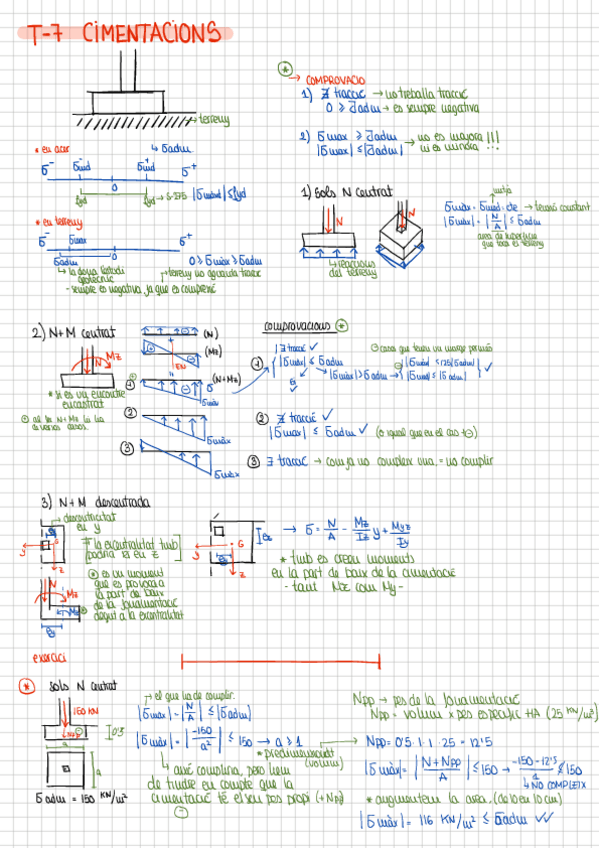 T-7 CIMENTACIONS
→ terreny
* en acer
↳ σadm
σ⁻ σmàx σmàx σ⁺
0
fyd fyd → S-275 |σmàxd| ≤ fyd
* en terreny
σ⁻ σmàx σ⁺
σadm 0 0 ≥ σmàx ≥ σadm
↳ la dona l'estudi geotècnic
↳ terreny no aguanta tracció
- sempre es negativa, ja que es compressió
* → COMPROVACIÓ
1) ∄ tracció → no treballa tracció
0 ≥ σadm → es sempre negativa
2) σmax ≥ σadm → no es majora !!!
|σmax| ≤ |σadm| ni es minora !!!
1) Sols N centrat
N N
↳ reaccions del terreny
mitja
σmàx = σmed = cte → tensió constant
|σmàx| = |N/A| ≤ σadm
area de superficie
que toca el terreny
2) N+M centrat
N Mz
* si es un encontre
encastrat
(N)
(Mz)
EN
① σ (N+Mz)
σmàx
② σmàx
③ σmàx
comprovacions *
① ∄ tracció ✓
|σmàx| ≤ σadm
|σmàx| > σadm
② ∄ tracció ✓
|σmàx| ≤ σadm ✓ (o igual que en el cas 1)
③ ∃ tracció → com ja no compleix una = no complir
3) N+M descentrada
↳ descentricitat
en y
y G z
* la excentralitat tmb
podria ser en z
N Mz
* es un moment
que es provoca a
la part de baix
de la fonamentació
degut a la excentralitat
ey
ez
y G z
→ σ = N/A - Mz/Iz y + My z/Iy
* tmb es creen moments
en la part de baix de la cimentació
- tant Mz com My -
exercici
* sols N centrat
150 KN
Npp
0'5
a
a
σadm = 150 KN/m²
↱ el que ha de complir.
|σmàx| = |N/A| ≤ |σadm|
|σmàx| = |-150/a²| ≤ 150 → a ≥ 1
* predimensionat
(volum)
↳ així compliria, pero hem
de tindre en compte que la
cimentació té el seu pes propi (+Npp)
Npp → pes de la fonamentació
Npp = volum x pes específic HA (25 KN/m³)
Npp = 0'5 · 1 · 1 · 25 = 12'5
|σmàx| = |N + Npp/A| ≤ 150 → -150-12'5/1 ≰ 150
↳ NO COMPLEIX
* augmentem la area. (de 10 en 10 cm)
|σmàx| = 116 KN/m² ≤ σadm ✓✓